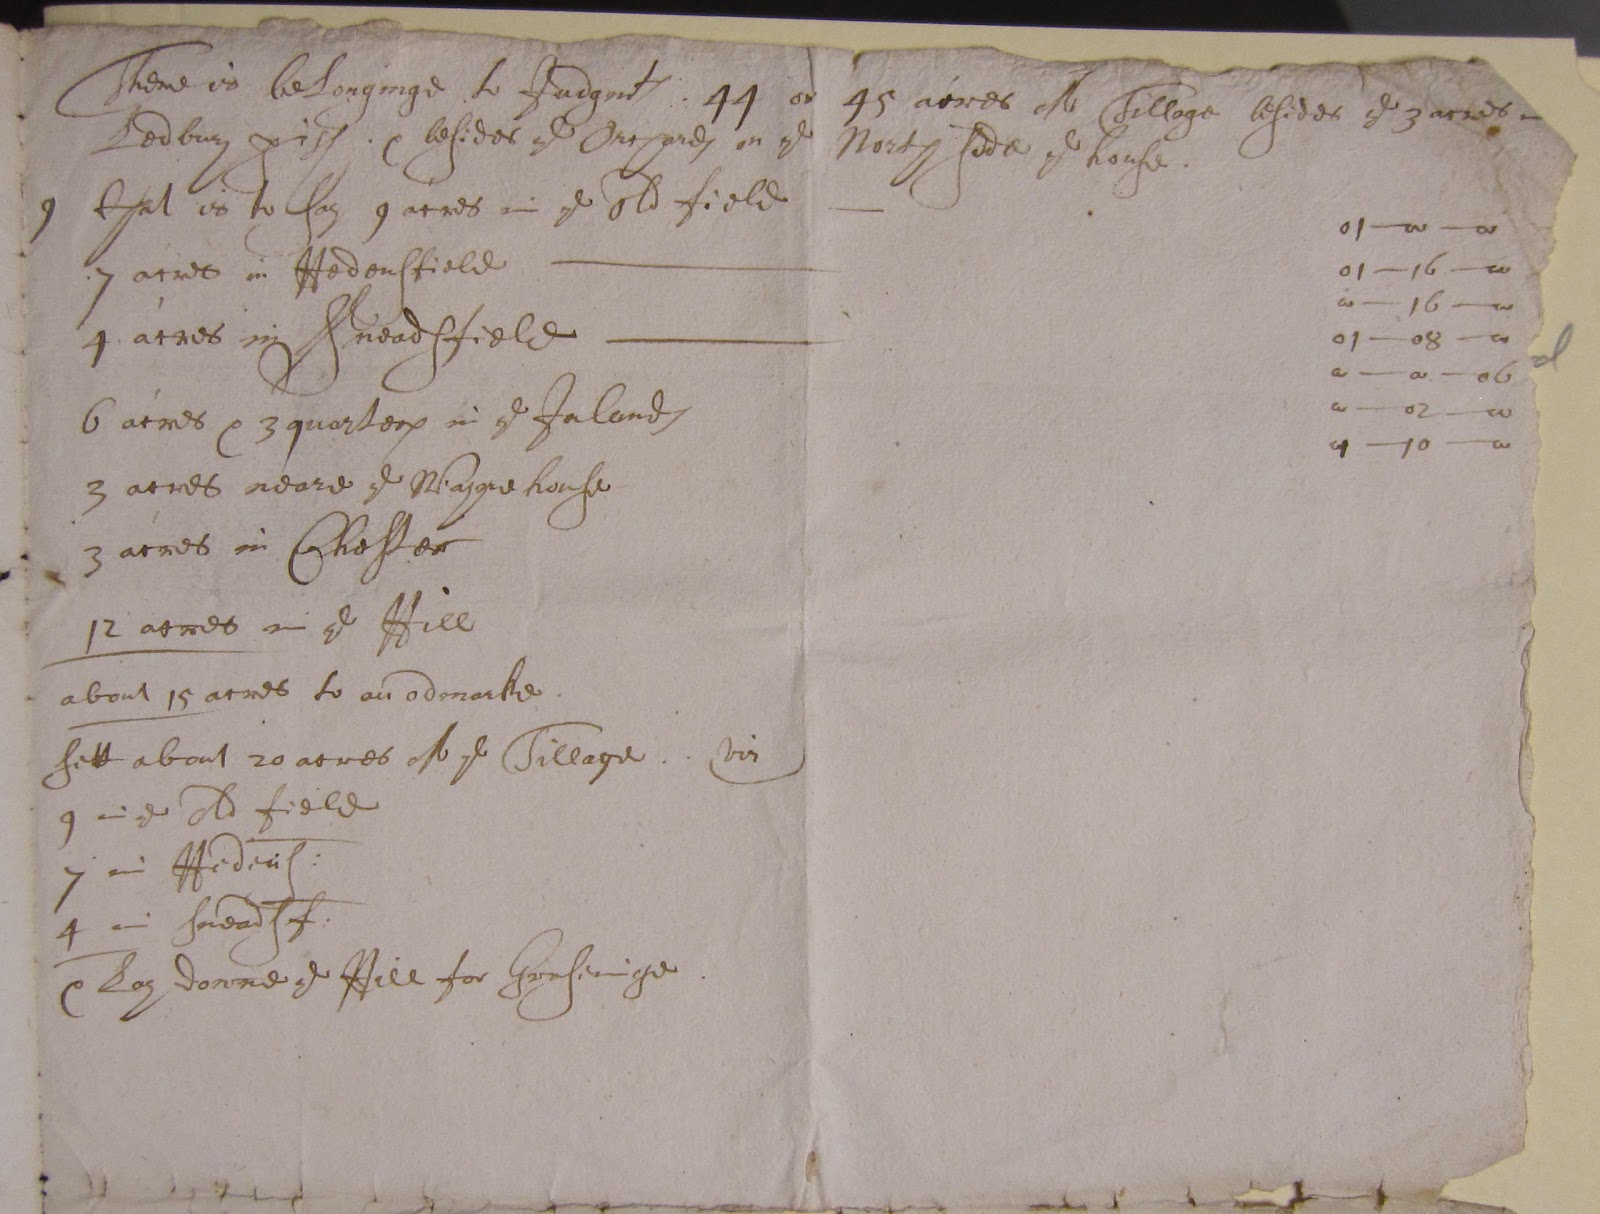 There is belonginge to Judgmt . 44 or 45 acres of Tillage besides ye 3 acres in
Ledbury pish . & besides ye Orchards on ye North side ye house .
9 that is to say 9 acres in ye old field —
7 acres in Hedensfield —
4 acres in Sneadsfield —
6 acres & 3 quarters in ye Inlands
3 acres neare ye house
3 acres in Chester
12 acres in ye Hill
about 15 acres to an odmarke .
sett about 20 acres of ye Tillage . . viz
9 in ye old field
7 in Hedens :
4 in sneadsf :
& Lay downe ye Hill for Graseinge .
01 — 00 — 00
01 — 16 — 00
00 — 16 — 00
01 — 08 — 00
00 — 00 — 06 d
00 — 02 — 00
4 — 10 — 00